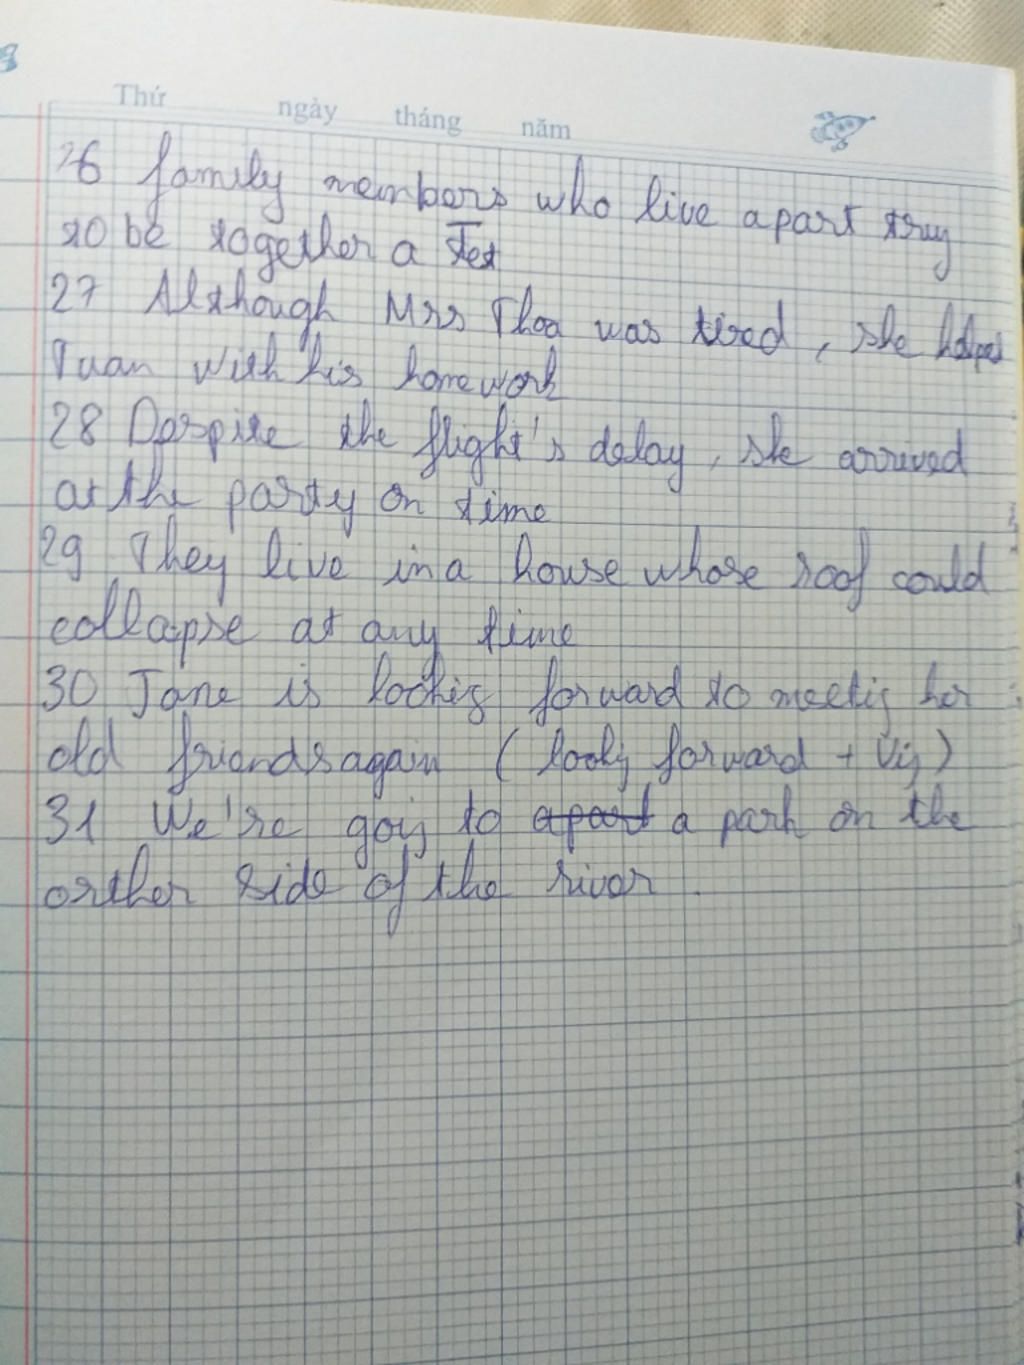 Thứ ngày tháng năm
26 family members who live apart try
to be together a Tet
27 Although Mrs Thoa was tired, she helped
Tuan with his homework
28 Despite the flight's delay, she arrived
at the party on time
29 They live in a house whose roof could
collapse at any time
30 Jane is looking forward to meeting her
old friends again (looking forward + Ving)
31 We're going to apart a park on the
orther side of the river.